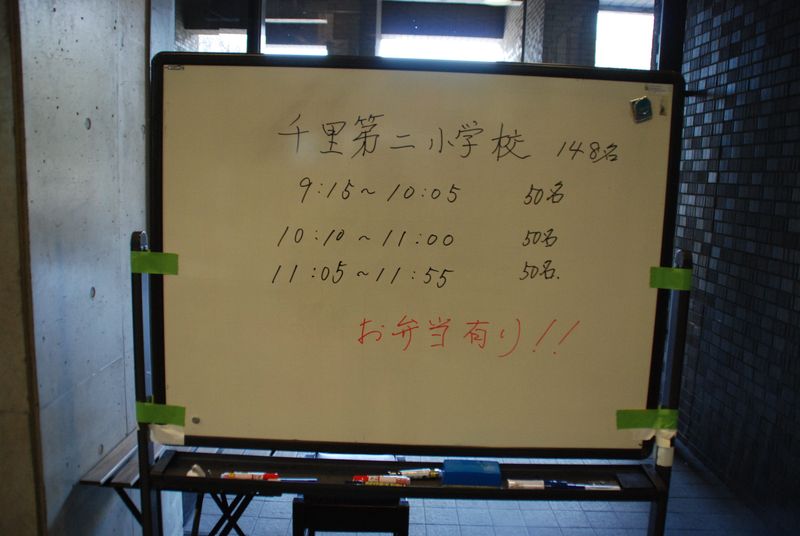 千里第二小学校 148名
9:15～10:05 50名
10:10～11:00 50名
11:05～11:55 50名.
お弁当有り!!